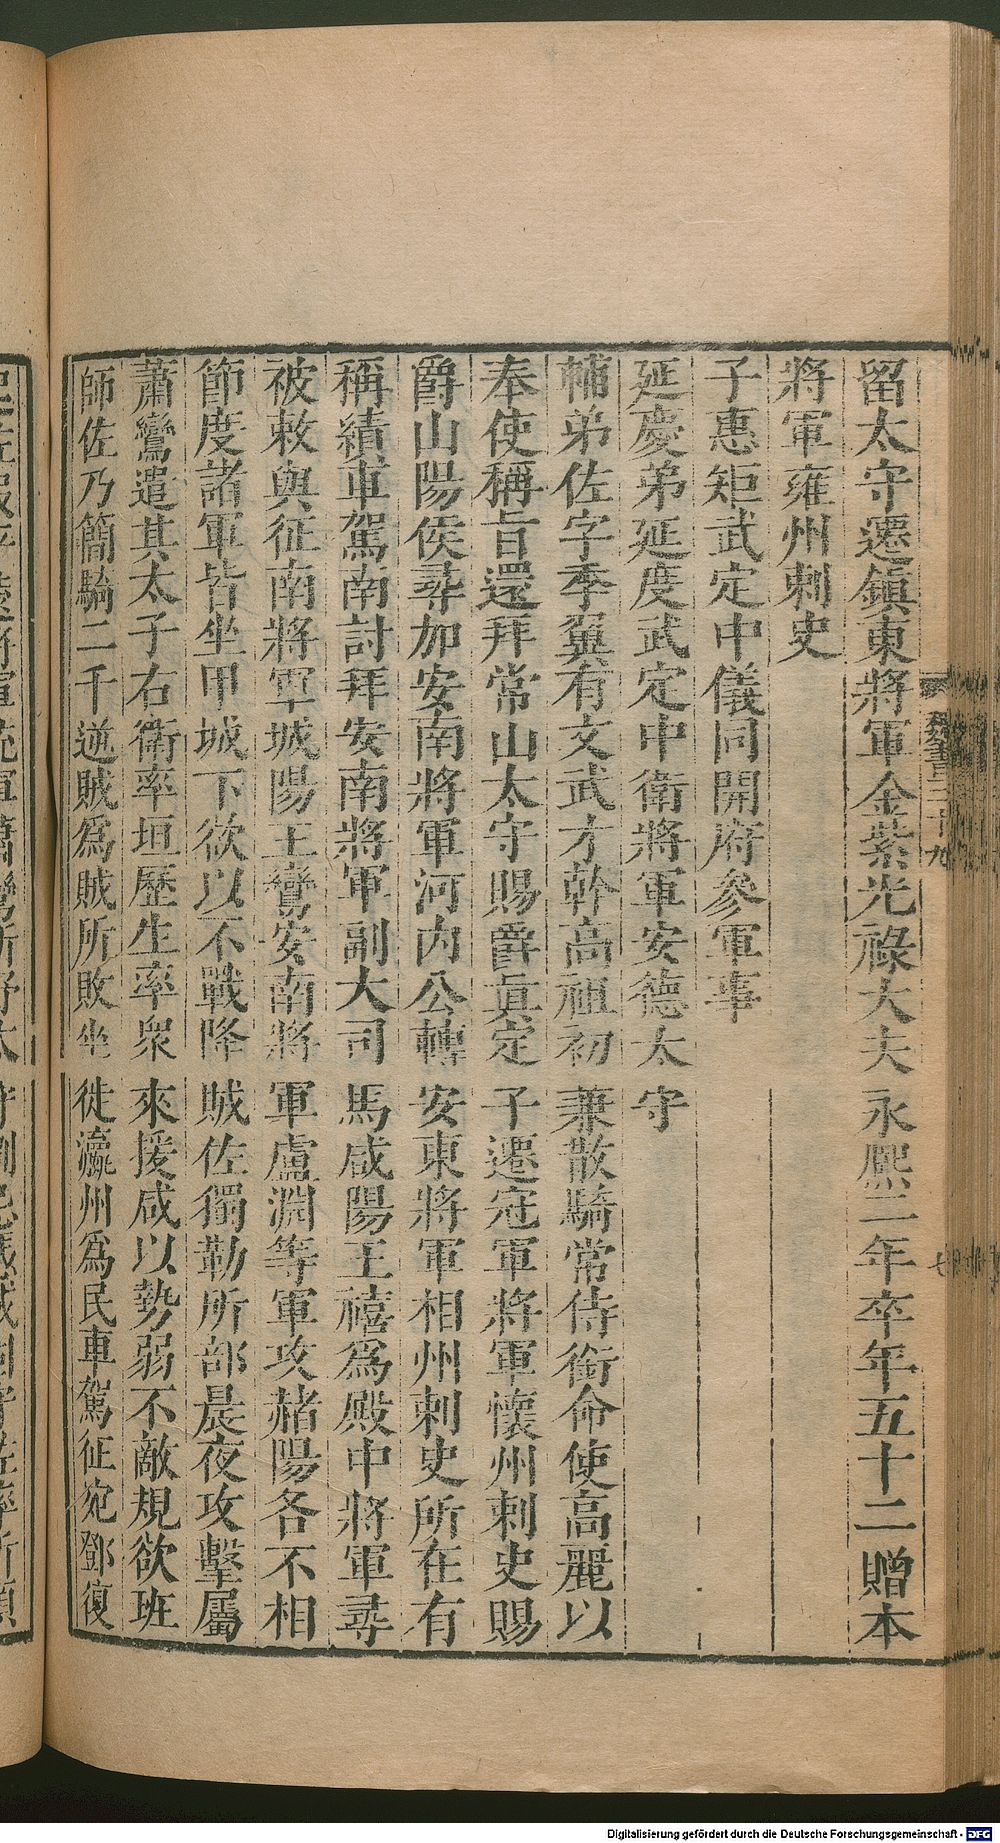 留太守遷鎮東將軍金紫光祿大夫永熙二年卒年五十二贈本
將軍雍州刺史
子惠矩武定中儀同開府參軍事
延慶弟延度武定中衛將軍安德太守
輔弟佐字季翼有文武才幹高祖初兼散騎常侍銜命使高麗以
奉使稱旨還拜常山太守賜爵真定子遷冠軍將軍懷州刺史賜
爵山陽侯尋加安南將軍河內公轉安東將軍相州刺史所在有
稱績車駕南討拜安南將軍副大司馬咸陽王禧為殿中將軍尋
被敕與征南將軍城陽王鸞安南將軍盧淵等軍攻赭陽各不相
節度諸軍皆坐甲城下欲以不戰降賊佐獨勒所部晨夜攻擊屬
蕭鸞遣其太子右衞率垣歷生率眾來援咸以勢弱不敵規欲班
師佐乃簡騎二千逆賊為賊所敗坐徙瀛州為民車駕征宛鄧復
魏書三十九
七
Digitalisierung gefördert durch die Deutsche Forschungsgemeinschaft - DFG